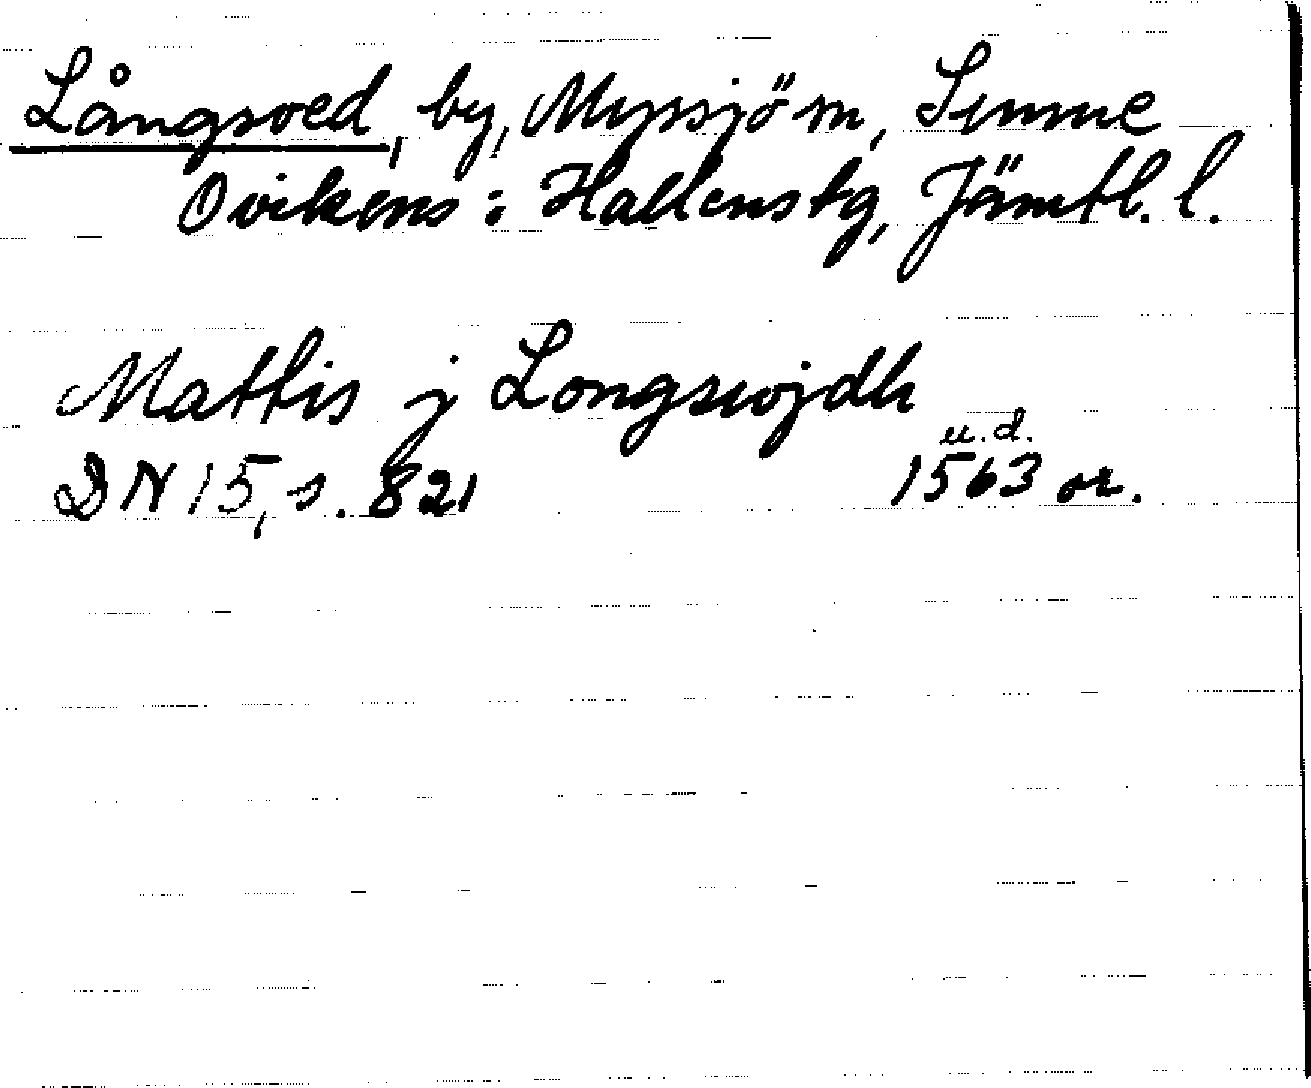 Långsved, by, Myssjö sn, Sunne
Ovikens o Hallens tg, Jämtl. l.
Mattis j Longswojdh
u.d.
DN 15, s. 821 1563 or.